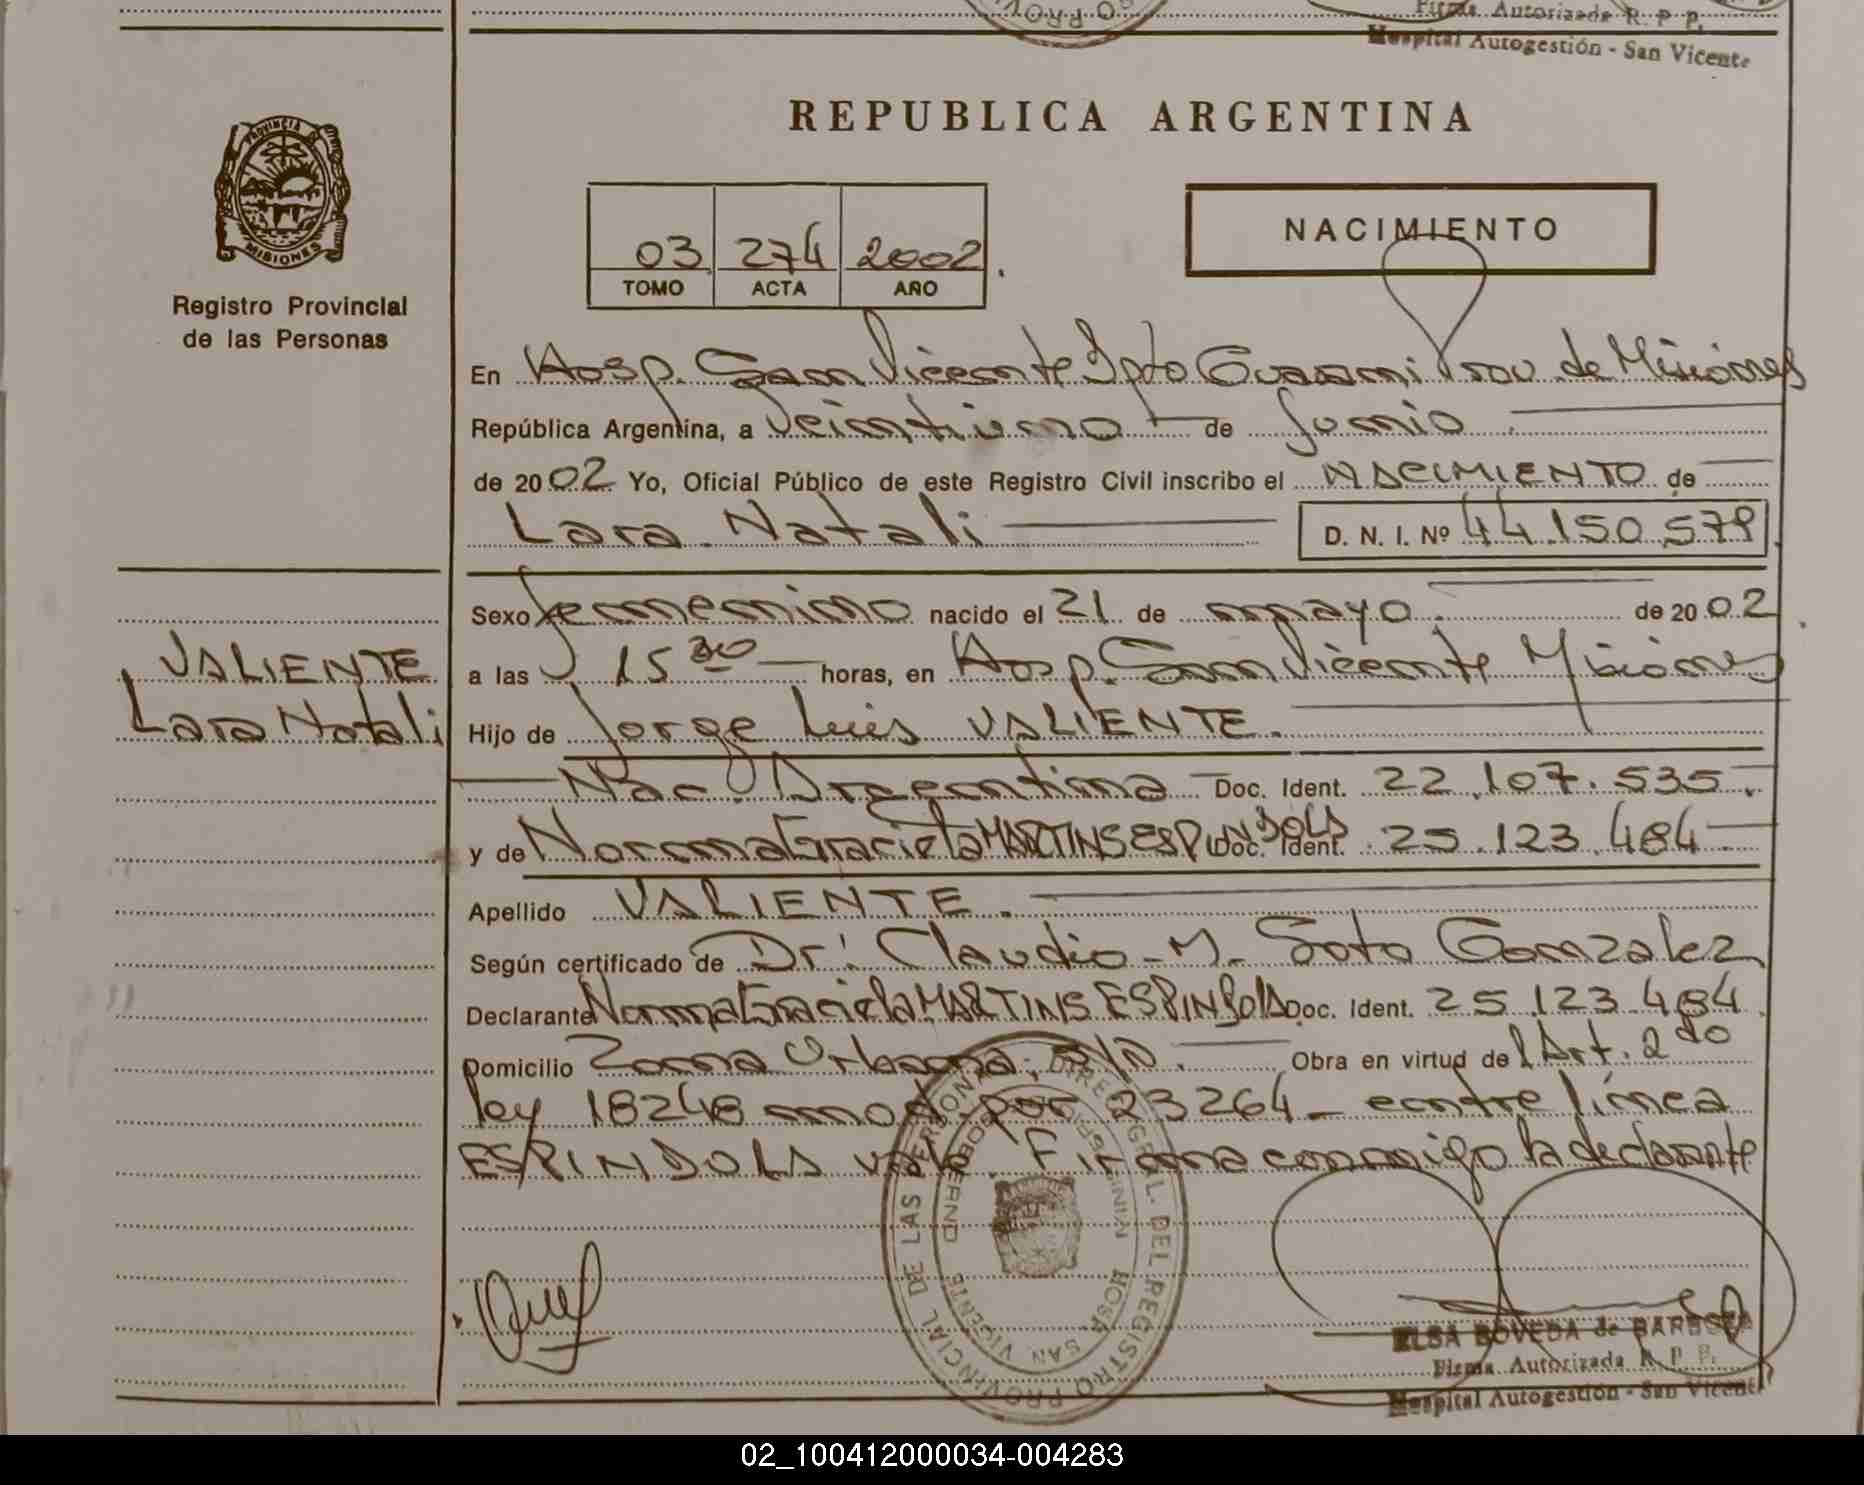 Firma Autorizada R. P. P.
Hospital Autogestión - San Vicente
REPUBLICA ARGENTINA
PROVINCIA DE
MISIONES
Registro Provincial
de las Personas
03 274 2002
TOMO ACTA AÑO
NACIMIENTO
En Hosp. San Vicente Dpto Guarani Prov. de Misiones
República Argentina, a veintiuno de Junio
de 2002 Yo, Oficial Público de este Registro Civil inscribo el NACIMIENTO de
Lara Natali D. N. I. Nº 44.150.579
Sexo femenino nacido el 21 de mayo de 2002
a las 15 30 horas, en Hosp. San Vicente Misiones
VALIENTE
Lara Natali
Hijo de Jorge Luis VALIENTE.
Nac. Argentina Doc. Ident. 22.107.535.
y de Norma Graciela MARTINS ESPINDOLA Doc. Ident. 25.123.484
Apellido VALIENTE.
Según certificado de Dr: Claudio M. Soto Gonzalez
Declarante Norma Graciela MARTINS ESPINDOLA Doc. Ident. 25.123.484
Domicilio Zona Urbana, Obra en virtud del Art. 2do
ley 18248 mod. por 23264 - entre línea
ESPINDOLA vale. Firma conmigo la declarante
DIREC. GRAL. DEL REGISTRO PROVINCIAL DE LAS PERSONAS
HOSP. SAN VICENTE
ELSA BOVEDA de BARBOZA
Firma Autorizada R. P. P.
Hospital Autogestión - San Vicente
02_100412000034-004283